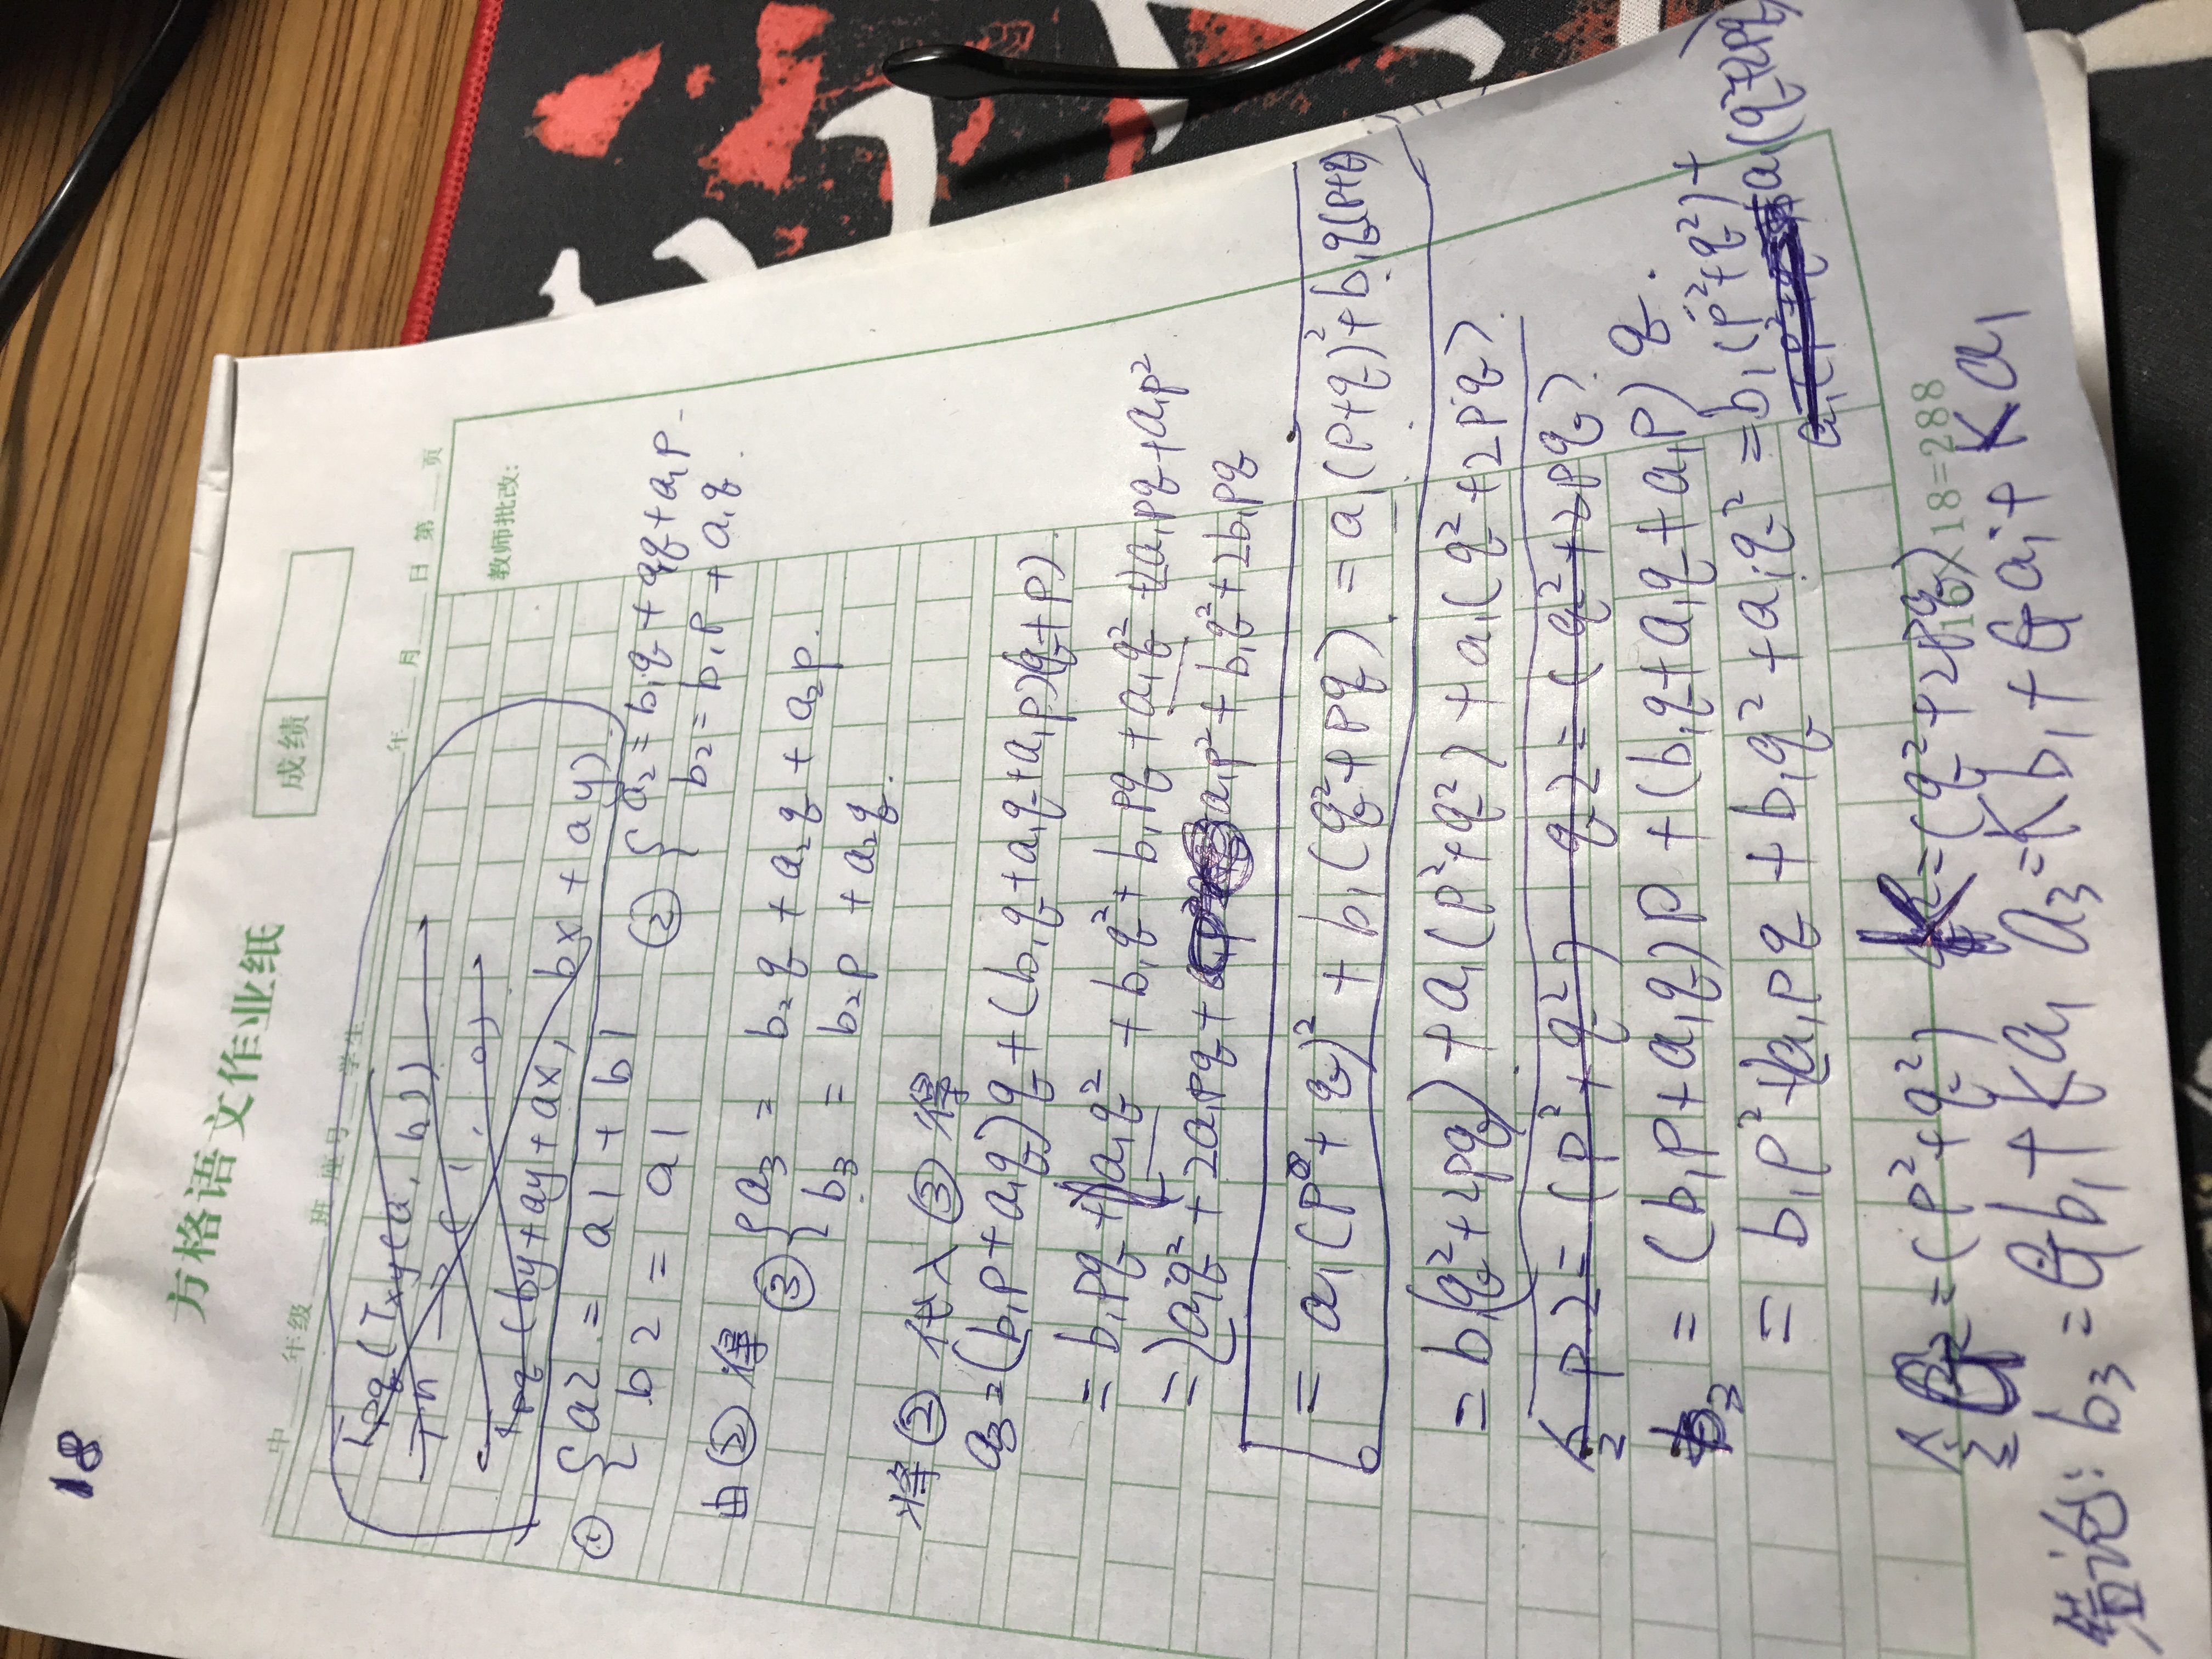 18
方格语文作业纸
成绩
中 年级 班 座号 学生 年 月 日 第 页
教师批改:
Tpq (Txy(a, b))
Tⁿ → ( 1 , 0)
Tpq (by+ay+ax, bx + ay)
① { a2 = a1 + b1
b2 = a1
② { a₂ = b₁q + a₁q + a₁p
b₂ = b₁p + a₁q .
由②得
③ { a₃ = b₂q + a₂q + a₂p.
b₃ = b₂p + a₂q.
将②代入③得
a₃=(b₁p+a₁q)q+(b₁q+a₁q+a₁p)(q+p).
= b₁pq + a₁q² + b₁q² + b₁pq + a₁q² + 2a₁pq + a₁p²
= 2a₁q² + 2a₁pq + a₁p² + b₁q² + 2b₁pq
= a₁(p + q)² + b₁(q²+pq) = a₁(p+q)²+b₁q(p+q)
= b₁(q²+2pq) + a₁(p²+q²) + a₁(q²+2pq).
令 p2 = (p²+q²) q2 = (q²+2pq)
b₃ = (b₁p+a₁q)p + (b₁q+a₁q+a₁p) q.
= b₁p²+2a₁pq + b₁q² + a₁q² = b₁(p²+q²)+
a₁(q²+2pq)
令 G = (p²+q²) K = (q²+2pq)
16×18=288
结论: b₃ = Gb₁ + Ka₁ a₃ = Kb₁ + Ga₁ + Ka₁